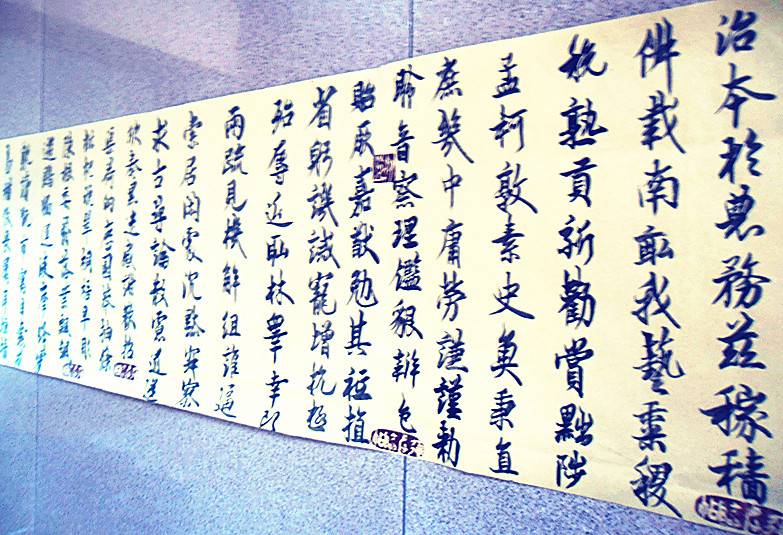 治本於農務茲稼穡
俶載南畝我藝黍稷
稅熟貢新勸賞黜陟
孟軻敦素史魚秉直
庶幾中庸勞謙謹勅
聆音察理鑑貌辨色
貽厥嘉猷勉其祗植
省躬譏誡寵增抗極
殆辱近恥林皋幸即
兩疏見機解組誰逼
索居閑處沉默寂寥
求古尋論散慮逍遙
欣奏累遣慼謝歡招
渠荷的歷園莽抽條
枇杷晚翠梧桐早凋
陳根委翳落葉飄颻
遊鵾獨運凌摩絳霄